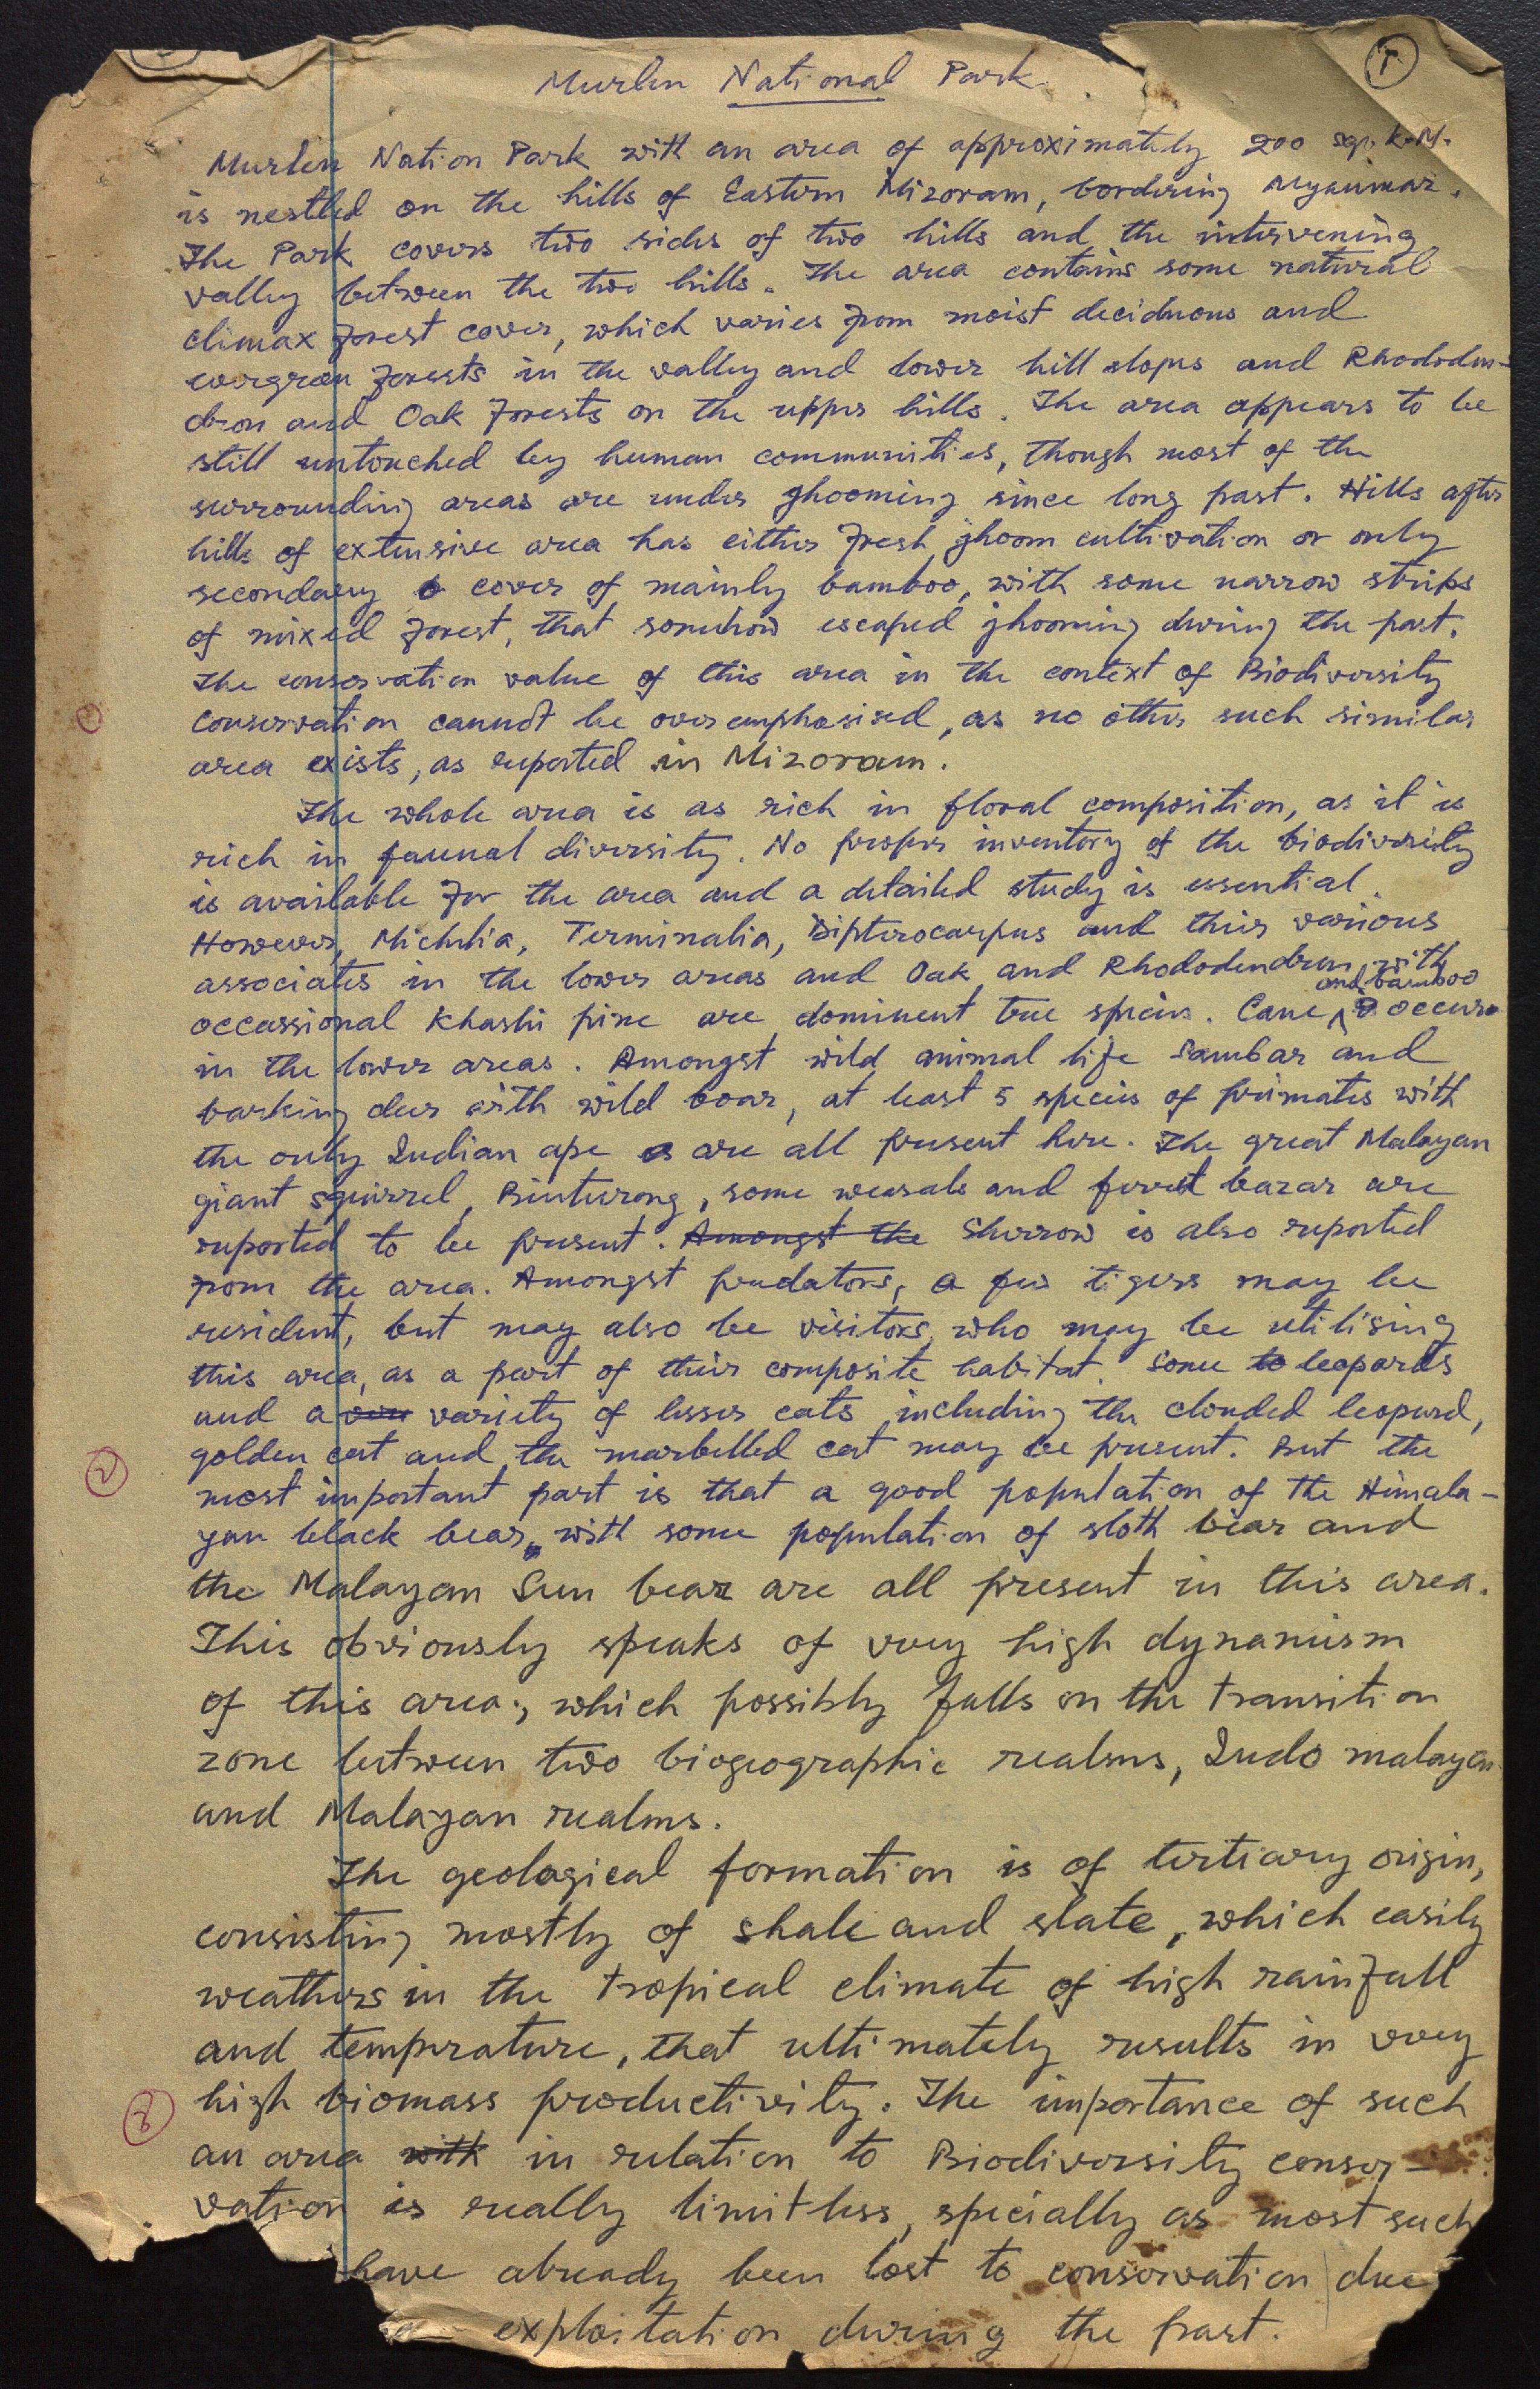 Murlen National Park
1
Murlen Nation Park with an area of approximately 200 sq. K.M.
is nestled on the hills of Eastern Mizoram, bordering Myanmar.
The Park covers two sides of two hills and the intervening
valley between the two hills. The area contains some natural
climax forest cover, which varies from moist deciduous and
evergreen forests in the valley and lower hill slopes and Rhododen-
dron and Oak forests on the upper hills. The area appears to be
still untouched by human communities, though most of the
surrounding areas are under jhooming since long past. Hills after
hills of extensive area has either fresh jhoom cultivation or only
secondary cover of mainly bamboo, with some narrow strips
of mixed forest, that somehow escaped jhooming during the past.
The conservation value of this area in the context of Biodiversity
conservation cannot be overemphasised, as no other such similar
area exists, as reported in Mizoram.
The whole area is as rich in floral composition, as it is
rich in faunal diversity. No proper inventory of the biodiversity
is available for the area and a detailed study is essential.
However, Michelia, Terminalia, Dipterocarpus and their various
associates in the lower areas and Oak and Rhododendron with
occassional Khashi pine are dominent tree species. Cane and bamboo occurs
in the lower areas. Amongst wild animal life Sambar and
barking deer with wild boar, at least 5 species of primates with
the only Indian ape are all present here. The great Malayan
giant squirrel, Binturong, some weasals and ferret bazar are
reported to be present. Amongst the Sherrow is also reported
from the area. Amongst predators, a few tigers may be
resident, but may also be visitors, who may be utilising
this area, as a part of their composite habitat. Some to leopards
and a variety of lesser cats including the clouded leopard,
golden cat and the marbelled cat may be present. But the
2
most important part is that a good population of the Himala-
yan black bear, with some population of sloth bear and
the Malayan Sun bear are all present in this area.
This obviously speaks of very high dynamism
of this area, which possibly falls on the transition
zone between two biogeographic realms, Indo malayan
and Malayan realms.
The geological formation is of tertiary origin,
consisting mostly of shale and slate, which easily
weathers in the tropical climate of high rainfall
and temprature, that ultimately results in very
3
high biomass productivity. The importance of such
an area with in relation to Biodiversity conser-
vation is really limitless, specially as most such
have already been lost to conservation due
exploitation during the past.